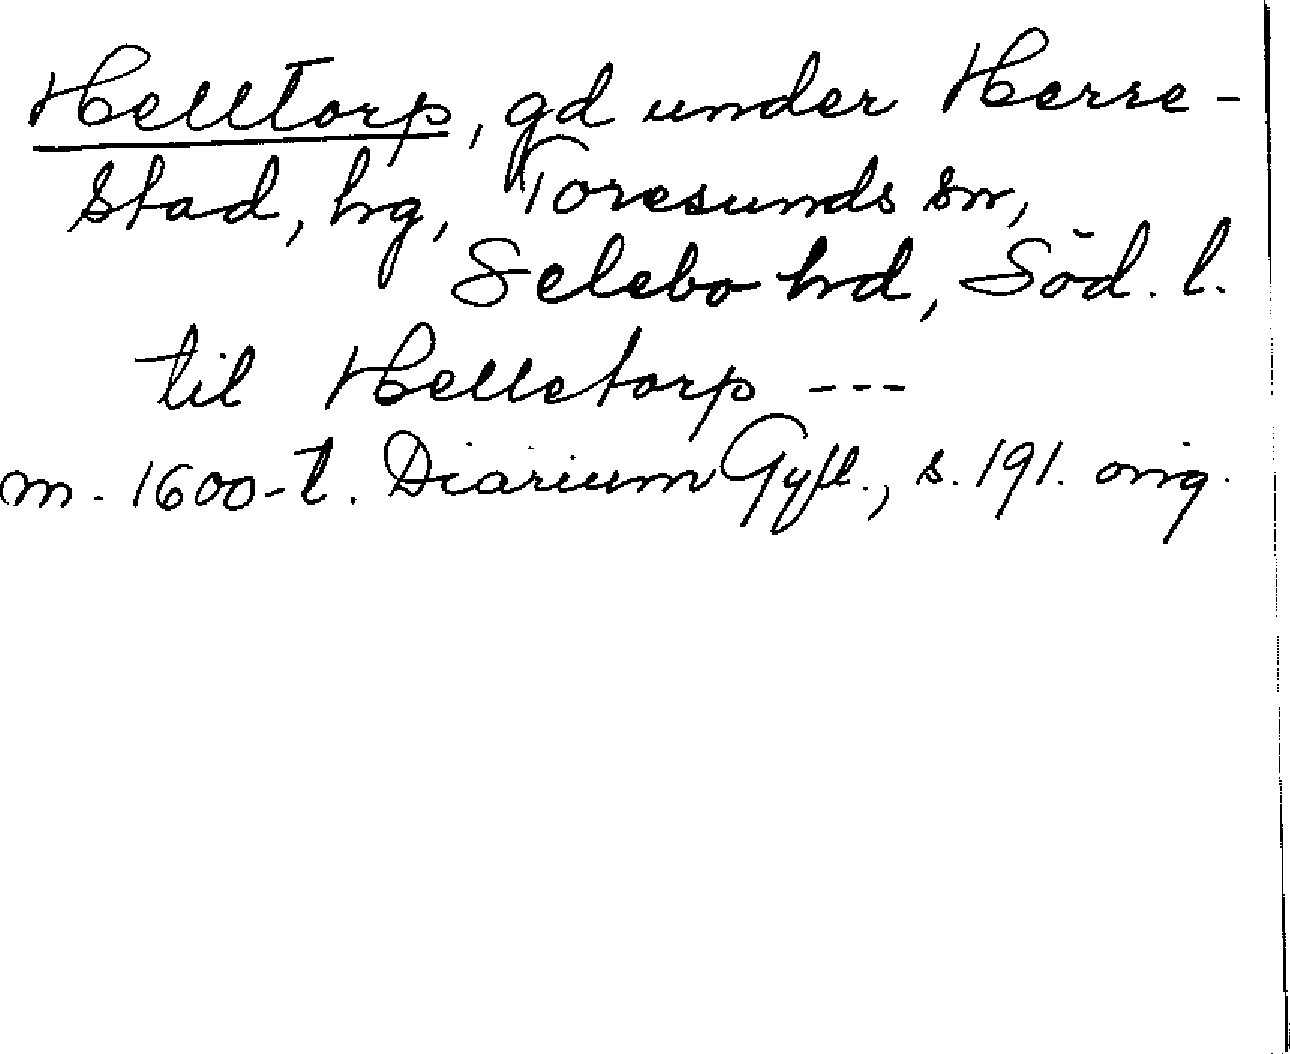 Helltorp, gd under Herre-
stad, hg, Toresunds sn,
Selebo hd, Söd. l.
til Helletorp ---
m. 1600-t. Diarium Gyll., s. 191. orig.